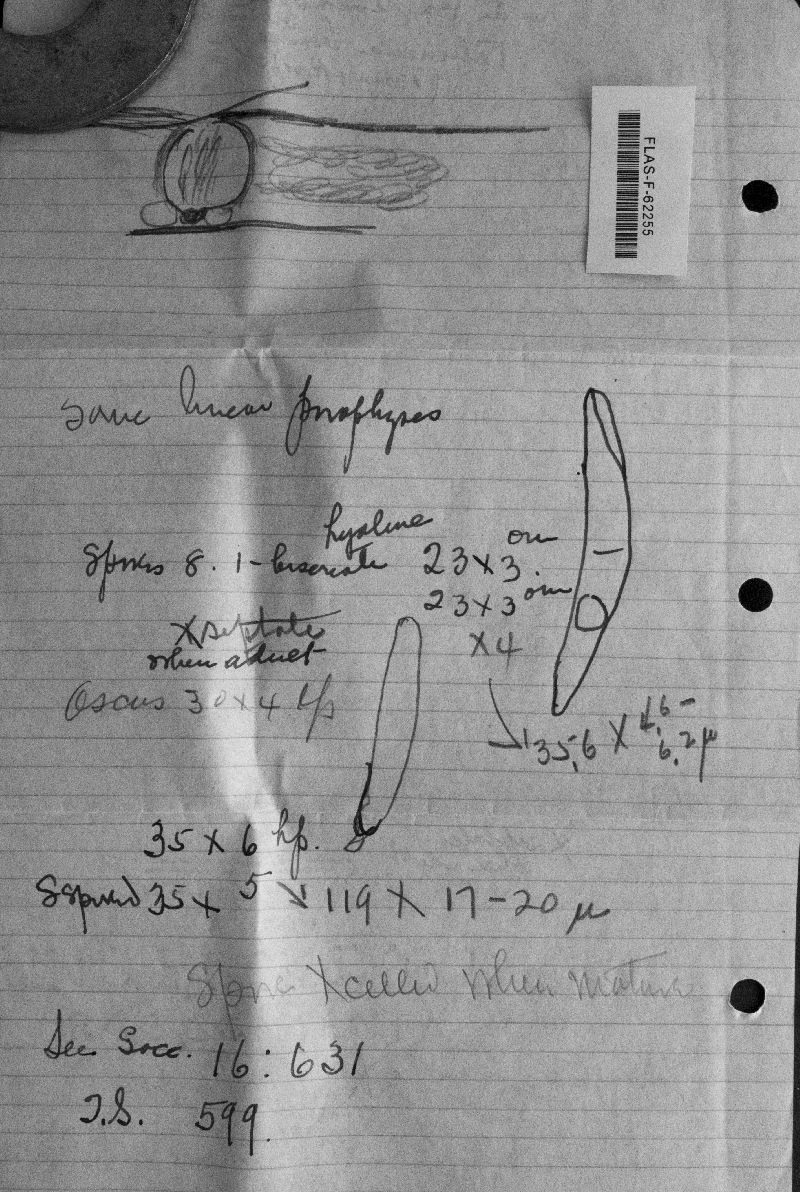 FLAS-F-62255
Some linear paraphyses
hyaline
Spores 8. 1-biseriate 23 x 3 om
23 x 3 om
x 4
X septate
when adult
Oscus 30 x 4 hp
35.6 X 4.6-
6.2 µ
35 x 6 hp.
8 spored 35 x 5 119 X 17-20 µ
Spore X celled when mature
See Sacc. 16:631
J.S. 599.